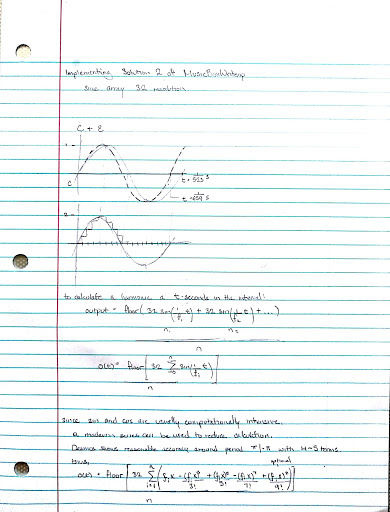 Implementing Solution 2 of MusicBoxWriteup
sine array 32 resolution
C + E
1 -
t = 1/523 s
C
t = 1/659 s
2 -
to calculate a harmonic a t-seconds in the interval:
output = floor( 32 sin(1/f₁ t) + 32 sin(1/f₂ t) + ... )
n₁ n₂
n
o(t) = floor [ 32 Σ sin(1/fᵢ t) ]
n
since sin and cos are usually computationally intensive,
a maclaurin series can be used to reduce calculation.
Desmos shows reasonable accuracy around period π|-π with 4-5 terms.
thus, optional
o(t) = floor [ 32 Σ ( fᵢx - (fᵢx)³/3! + (fᵢx)⁵/5! - (fᵢx)⁷/7! + (fᵢx)⁹/9! ) ]
n